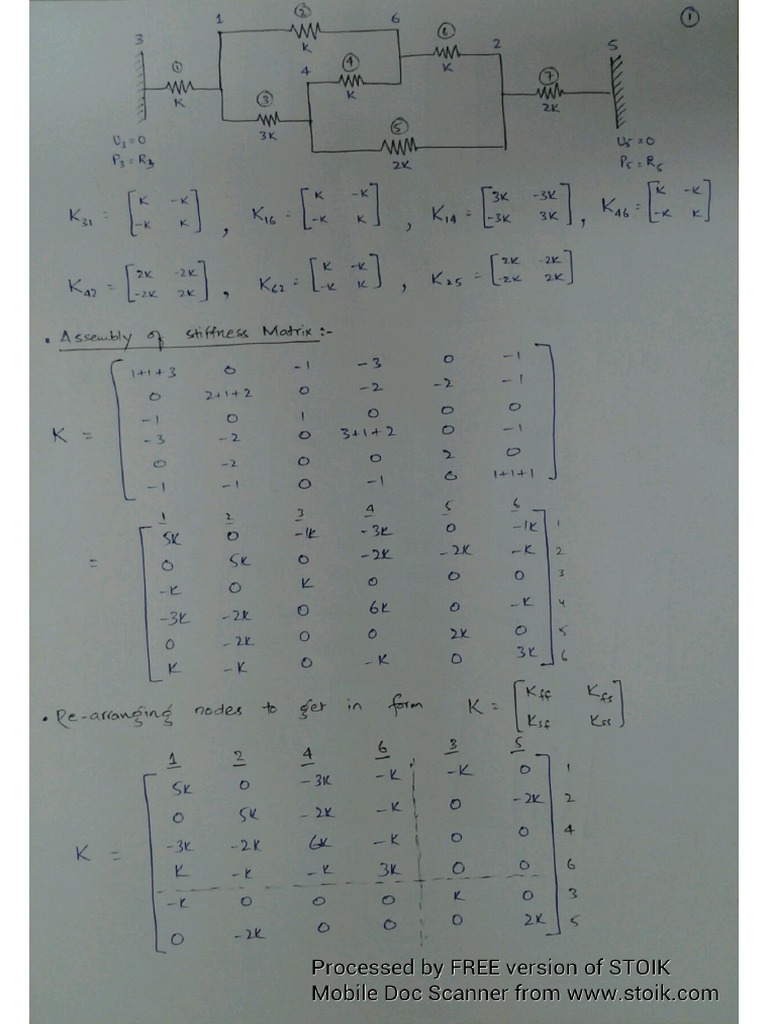 ①
② 6
1
K ⑥
3 ④ 2 5
① 4 K ⑦
K ③ K
3K 2K
⑤
U₃=0 2K U₅=0
P₃=R₃ P₅=R₅
K₃₁ = [K -K; -K K], K₁₆ = [K -K; -K K], K₁₄ = [3K -3K; -3K 3K], K₄₆ = [K -K; -K K]
K₄₂ = [2K -2K; -2K 2K], K₆₂ = [K -K; -K K], K₂₅ = [2K -2K; -2K 2K]
• Assembly of stiffness Matrix:-
1+1+3 0 -1 -3 0 -1
0 2+1+2 0 -2 -2 -1
-1 0 1 0 0 0
K =
-3 -2 0 3+1+2 0 -1
0 -2 0 0 2 0
-1 -1 0 -1 0 1+1+1
1 2 3 4 5 6
5K 0 -1K -3K 0 -1K 1
= 0 5K 0 -2K -2K -K 2
-K 0 K 0 0 0 3
-3K -2K 0 6K 0 -K 4
0 -2K 0 0 2K 0 5
K -K 0 -K 0 3K 6
• Re-arranging nodes to get in form K = [Kff Kfs; Ksf Kss]
1 2 4 6 3 5
5K 0 -3K -K -K 0 1
0 5K -2K -K 0 -2K 2
K = -3K -2K 6K -K 0 0 4
K -K -K 3K 0 0 6
-K 0 0 0 K 0 3
0 -2K 0 0 0 2K 5
Processed by FREE version of STOIK
Mobile Doc Scanner from www.stoik.com